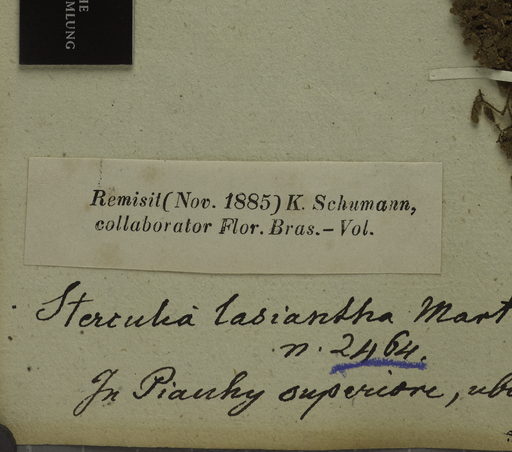 Remisit (Nov. 1885) K. Schumann,
collaborator Flor. Bras. – Vol.
Sterculia lasiantha Mart
n. 2464.
In Piauhy superiore,